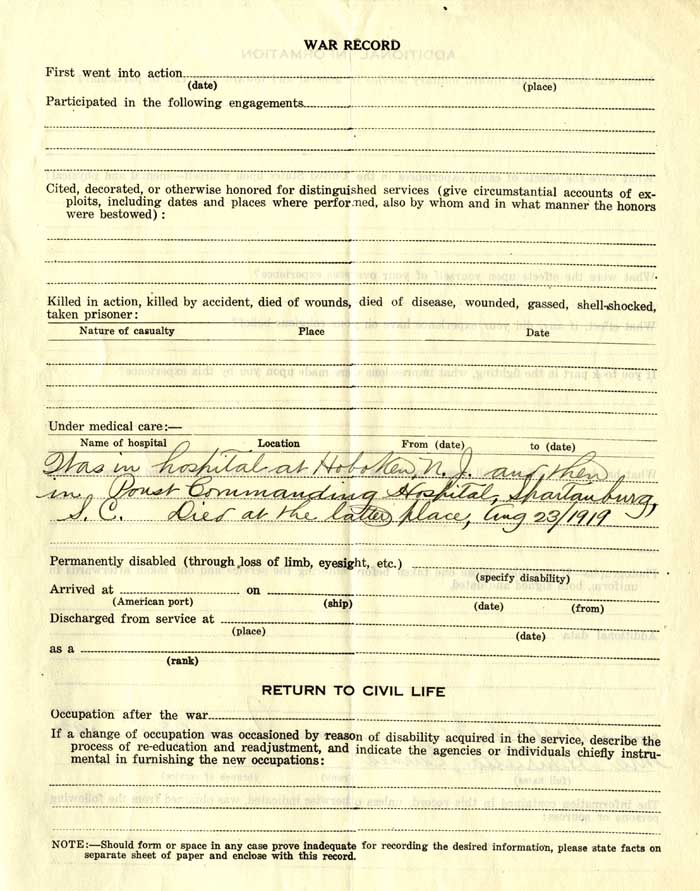 WAR RECORD
First went into action
(date) (place)
Participated in the following engagements
Cited, decorated, or otherwise honored for distinguished services (give circumstantial accounts of ex-
ploits, including dates and places where performed, also by whom and in what manner the honors
were bestowed) :
Killed in action, killed by accident, died of wounds, died of disease, wounded, gassed, shell-shocked,
taken prisoner:
Nature of casualty Place Date
Under medical care:—
Name of hospital Location From (date) to (date)
Was in hospital at Hoboken, N. J. and then
in Poust Commanding Hospital, Spartanburg,
S. C. Died at the latter place, Aug 23/1919
Permanently disabled (through loss of limb, eyesight, etc.)
(specify disability)
Arrived at on
(American port) (ship) (date) (from)
Discharged from service at
(place) (date)
as a
(rank)
RETURN TO CIVIL LIFE
Occupation after the war
If a change of occupation was occasioned by reason of disability acquired in the service, describe the
process of re-education and readjustment, and indicate the agencies or individuals chiefly instru-
mental in furnishing the new occupations:
NOTE:—Should form or space in any case prove inadequate for recording the desired information, please state facts on
separate sheet of paper and enclose with this record.